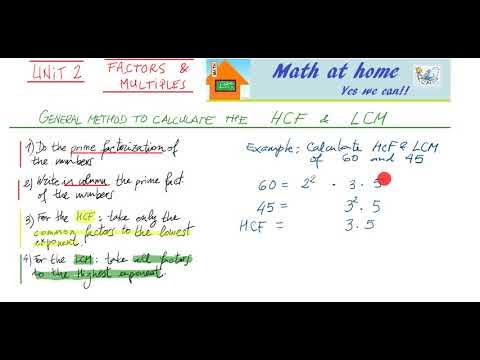 UNIT 2
FACTORS &
MULTIPLES
MATH
Math at home
Yes we can!!
GENERAL METHOD TO CALCULATE THE HCF & LCM
1) Do the prime factorization of
the numbers
2) Write in column the prime fact.
of the numbers
3) For the HCF: take only the
common factors to the lowest
exponent.
4) For the LCM: take all factors
to the highest exponent.
Example: Calculate HCF & LCM
of 60 and 45
60 = 2² · 3 · 5
45 = 3² · 5
HCF = 3 · 5